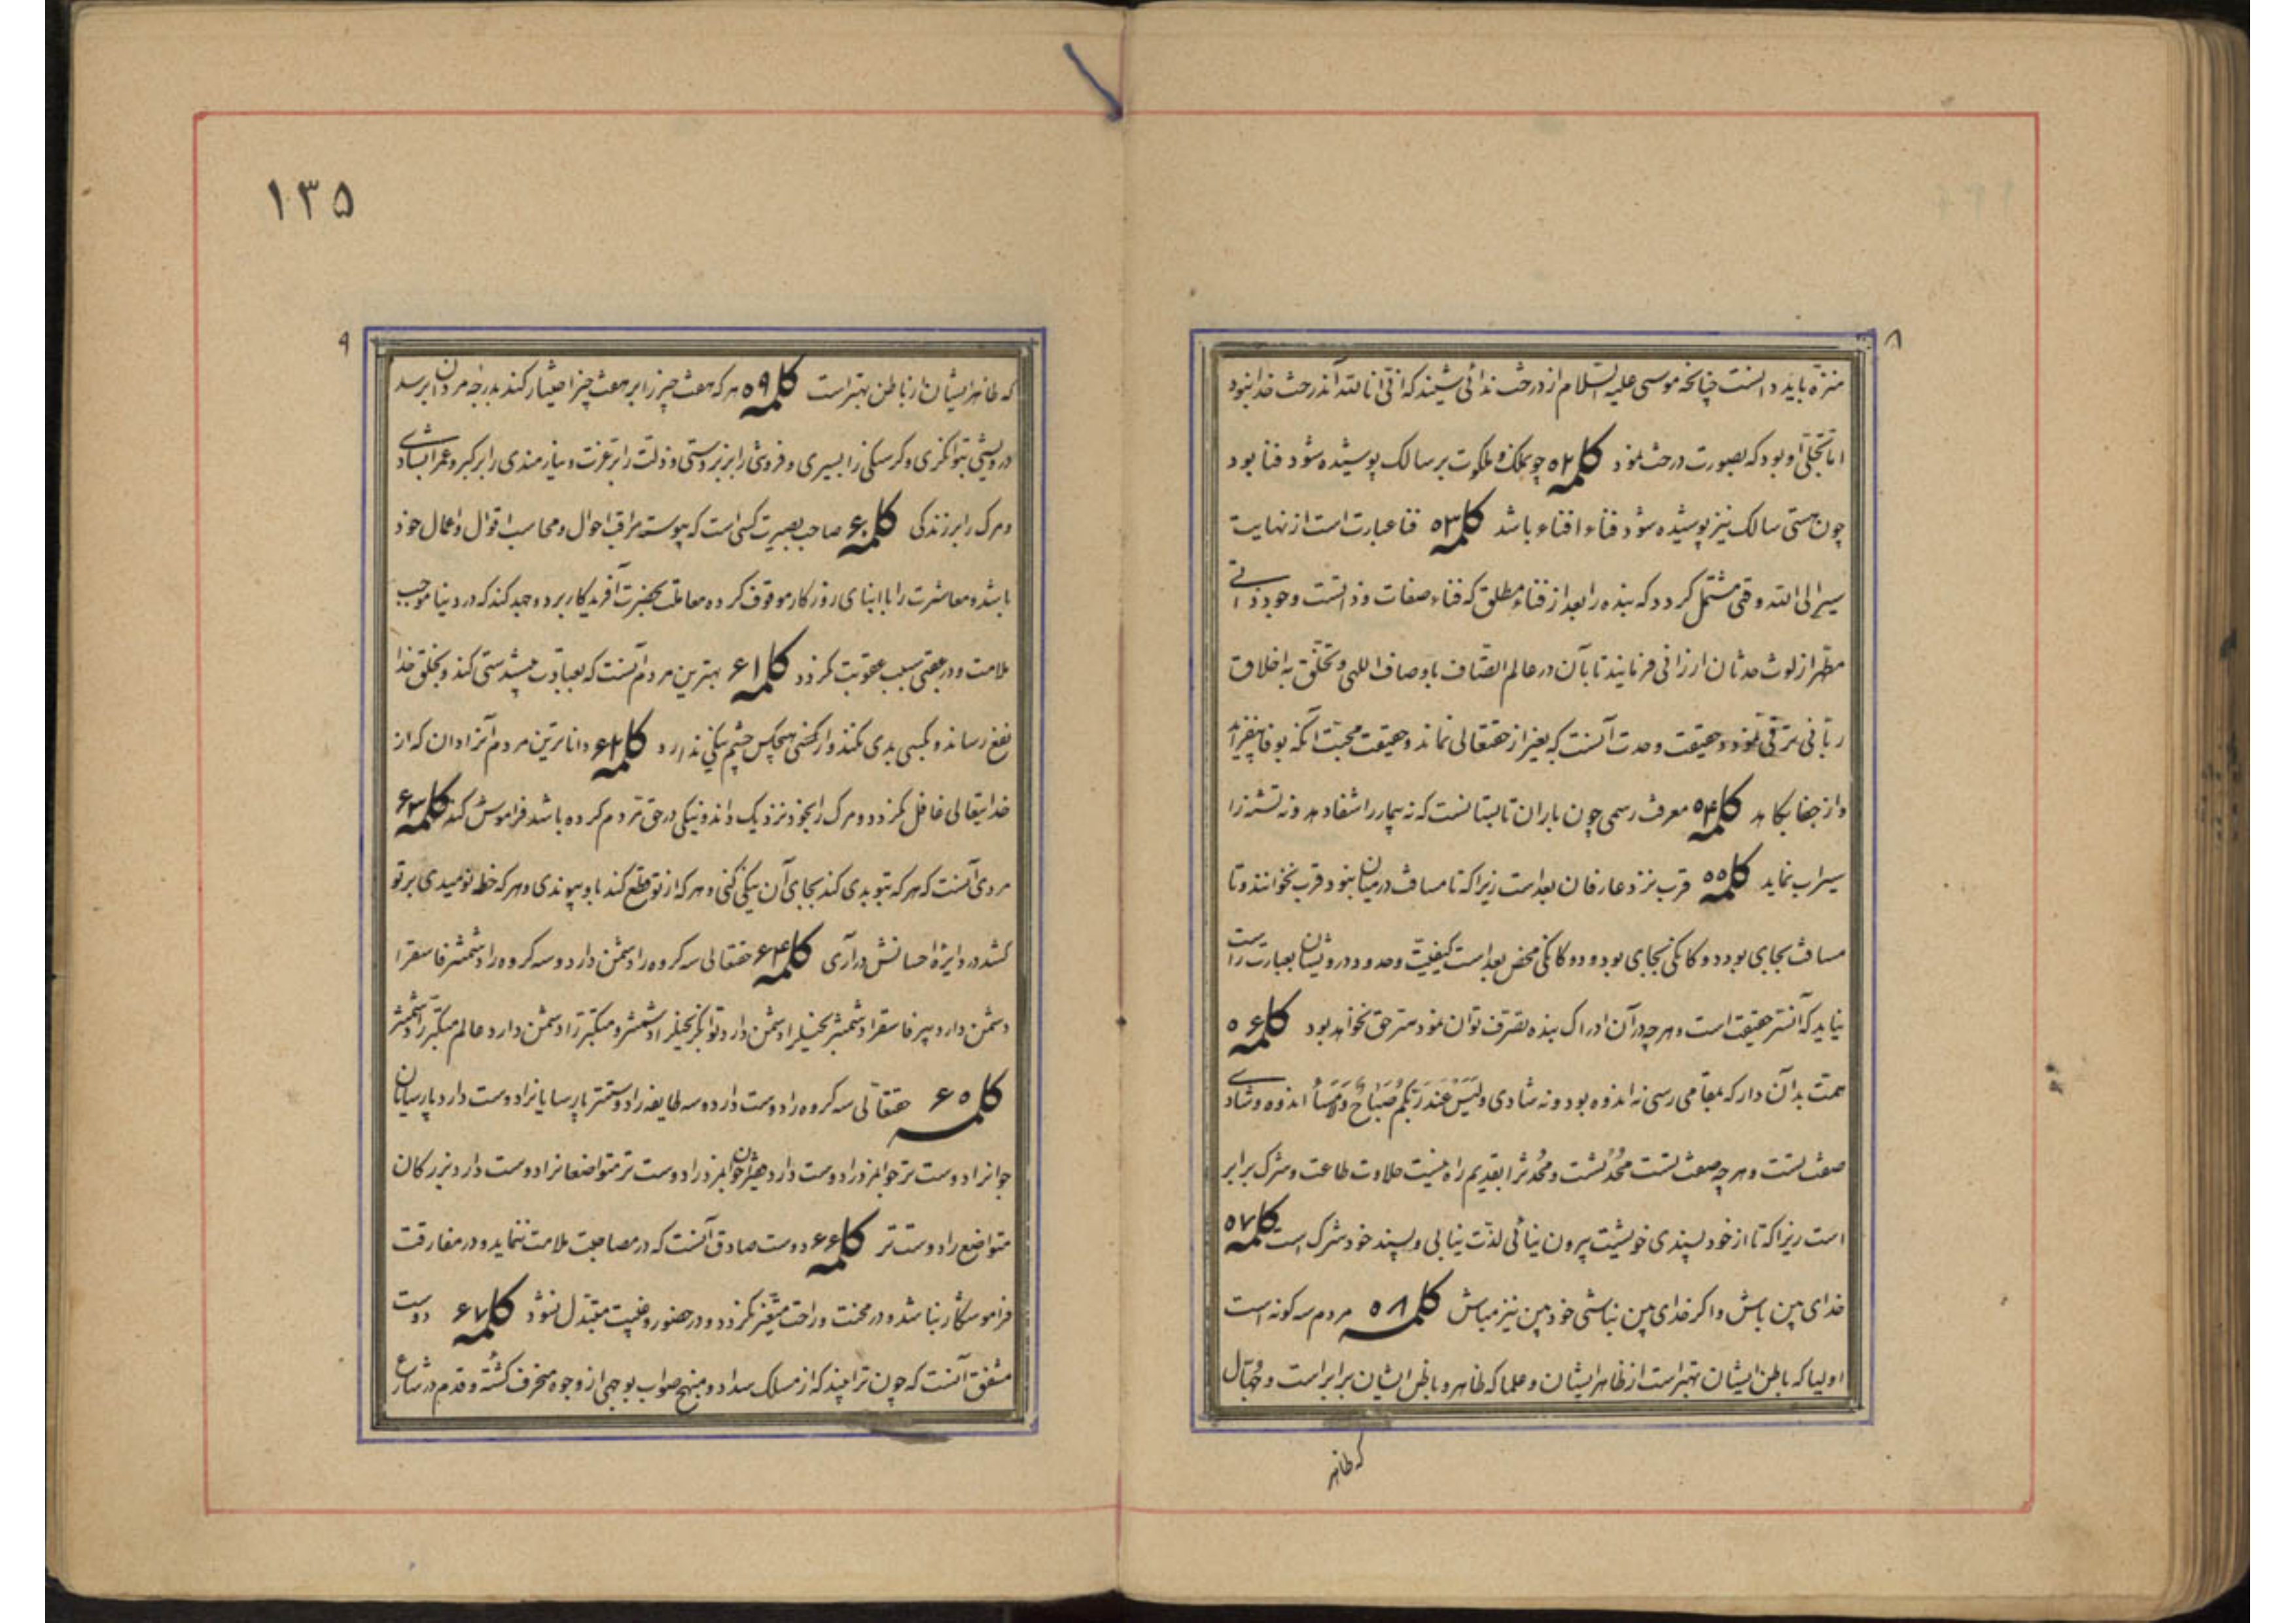 ۸
منزّه باید دانست چنانچه موسی علیه السّلام از درخت ندائی شنید که انّی انا لله آندرخت خدا نبود
امّا تجلّی او بود که بصورت درخت نمود کلمه ۵۲ چو ملک و ملکوت بر سالک پوشیده شود فنا بود
چون هستی سالک نیز پوشیده شود فناء افناء باشد کلمه ۵۳ فنا عبارت است از نهایت
سیر الی الله وقتی مشتمل کردد که بنده را بعد از فناء مطلق که فناء صفات و ذاتست وجود ذاتی
مطهّر از لوث حدثان ارزانی فرمایند تا بآن در عالم اتّصاف باوصاف اللهی و تخلّق به اخلاق
ربّانی ترقّی نمود و حقیقت وحدت آنست که بغیر از حقتعالی نماند و حقیقت محبّت آنکه بوفا نیفزاید
و از جفا نکاهد کلمه ۵۴ معرفت رسمی چون باران تابستانست که نه بیمار را شفا دهد و نه تشنه را
سیراب نماید کلمه ۵۵ قرب نزد عارفان بعد است زیرا که تا مسافت درمیان نبود قرب نخوانند و تا
مسافت بجای بود دوکانکی بجای بود و دوکانکی محض بعد است کیفیّت وحدود درویشان بعبارت راست
نیاید که آنستر حقیقت است و هر چه در آن ادراک بنده تصرّف توان نمود سرّ حق نخواهد بود کلمه ۵۶
همّت بدان دار که بمقامی رسی نه اندوه بود و نه شادی و لَیسَ عِندَ رَبّکُم صَباحٌ وَلامَساءٌ اندوه و شادی
صفت تست و هر چه صفت تست محدَثست و محدَث را بقدیم راه نیست حلاوت طاعت و شرک برابر
است زیرا که تا از خود پسندی خویشت بیرون نیائی لذّت نیابی و پسند خود شرک است کلمه ۵۷
خدای بین باش و اکر خدای بین نباشی خود بین نیز مباش کلمه ۵۸ مردم سه کونه است
اولیا که باطن ایشان بهتر است از ظاهر ایشان و علما که ظاهر و باطن ایشان برابر است و جُهّال
که ظاهر
۱۳۵
۹
که ظاهر ایشان از باطن بهتر است کلمه ۵۹ هر که هفت چیز را بر هفت چیز اختیار کند بدرجه مردان برسد
درویشی بتوانکری و کرسنکی را بسیری و فروتنی را بزبردستی و ذلّت را بر عزّت و نیازمندی را بر کبر و غم را بشادی
و مرک را بر زندکی کلمه ۶۰ صاحب بصیرت کسی است که پیوسته مراقب احوال و محاسب اقوال و اعمال خود
باشد و معاشرت را با ابنای روزکار موقوف کرده معاملت بحضرت آفریدکار برد و جهد کند که در دنیا موجب
ملامت و در عقبی سبب عقوبت نکردد کلمه ۶۱ بهترین مردم آنست که بعبادت پیشدستی کند و بخلق خدا
نفع رساند و بکسی بدی نکند و از هیچکس چشم نیکی ندارد کلمه ۶۲ داناترین مردم آنرا دان که از
خدایتعالی غافل نکردد و مرک را بخود نزدیک داند و نیکی در حق مردم کرده باشد فراموش کند کلمه ۶۳
مردی آنست که هر که بتو بدی کند بجای آن نیکی کنی و هر که از تو قطع کند باو پیوندی و هر که خط نومیدی بر تو
کشد در دایرهٔ احسانش درآری کلمه ۶۴ حقتعالی سه کروه را دشمن دارد و سه کروه را دشمنتر فاسقرا
دشمن دارد پیر فاسقرا دشمنتر بخیلرا دشمن دارد توانکر بخیلرا دشمنتر و متکبّر را دشمن دارد عالم متکبّر را دشمنتر
کلمه ۶۵ حقتعالی سه کروه را دوست دارد و سه طایفه را دوستتر پارسایانرا دوست دارد پارسایان
جوانرا دوست تر جوانمرد را دوست دارد فقیران جوانمرد را دوست تر متواضعانرا دوست دارد بزرکان
متواضع را دوست تر کلمه ۶۶ دوست صادق آنست که در مصاحبت ملامت ننماید و در مفارقت
فراموشکار نباشد و در محنت و راحت متغیّر نکردد و در حضور و غیبت متبدّل نشود کلمه ۶۷ دوست
مشفق آنست که چون ترا بیند که از مسلک سداد و منهج صواب بوجهی از وجوه منحرف کشته و قدم در شارع